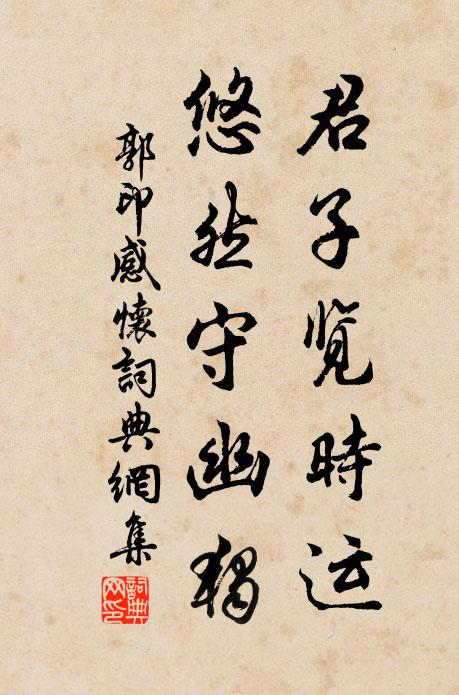 君子览時运
悠然守幽獨
郭印感懷詞典網集
詞典网印